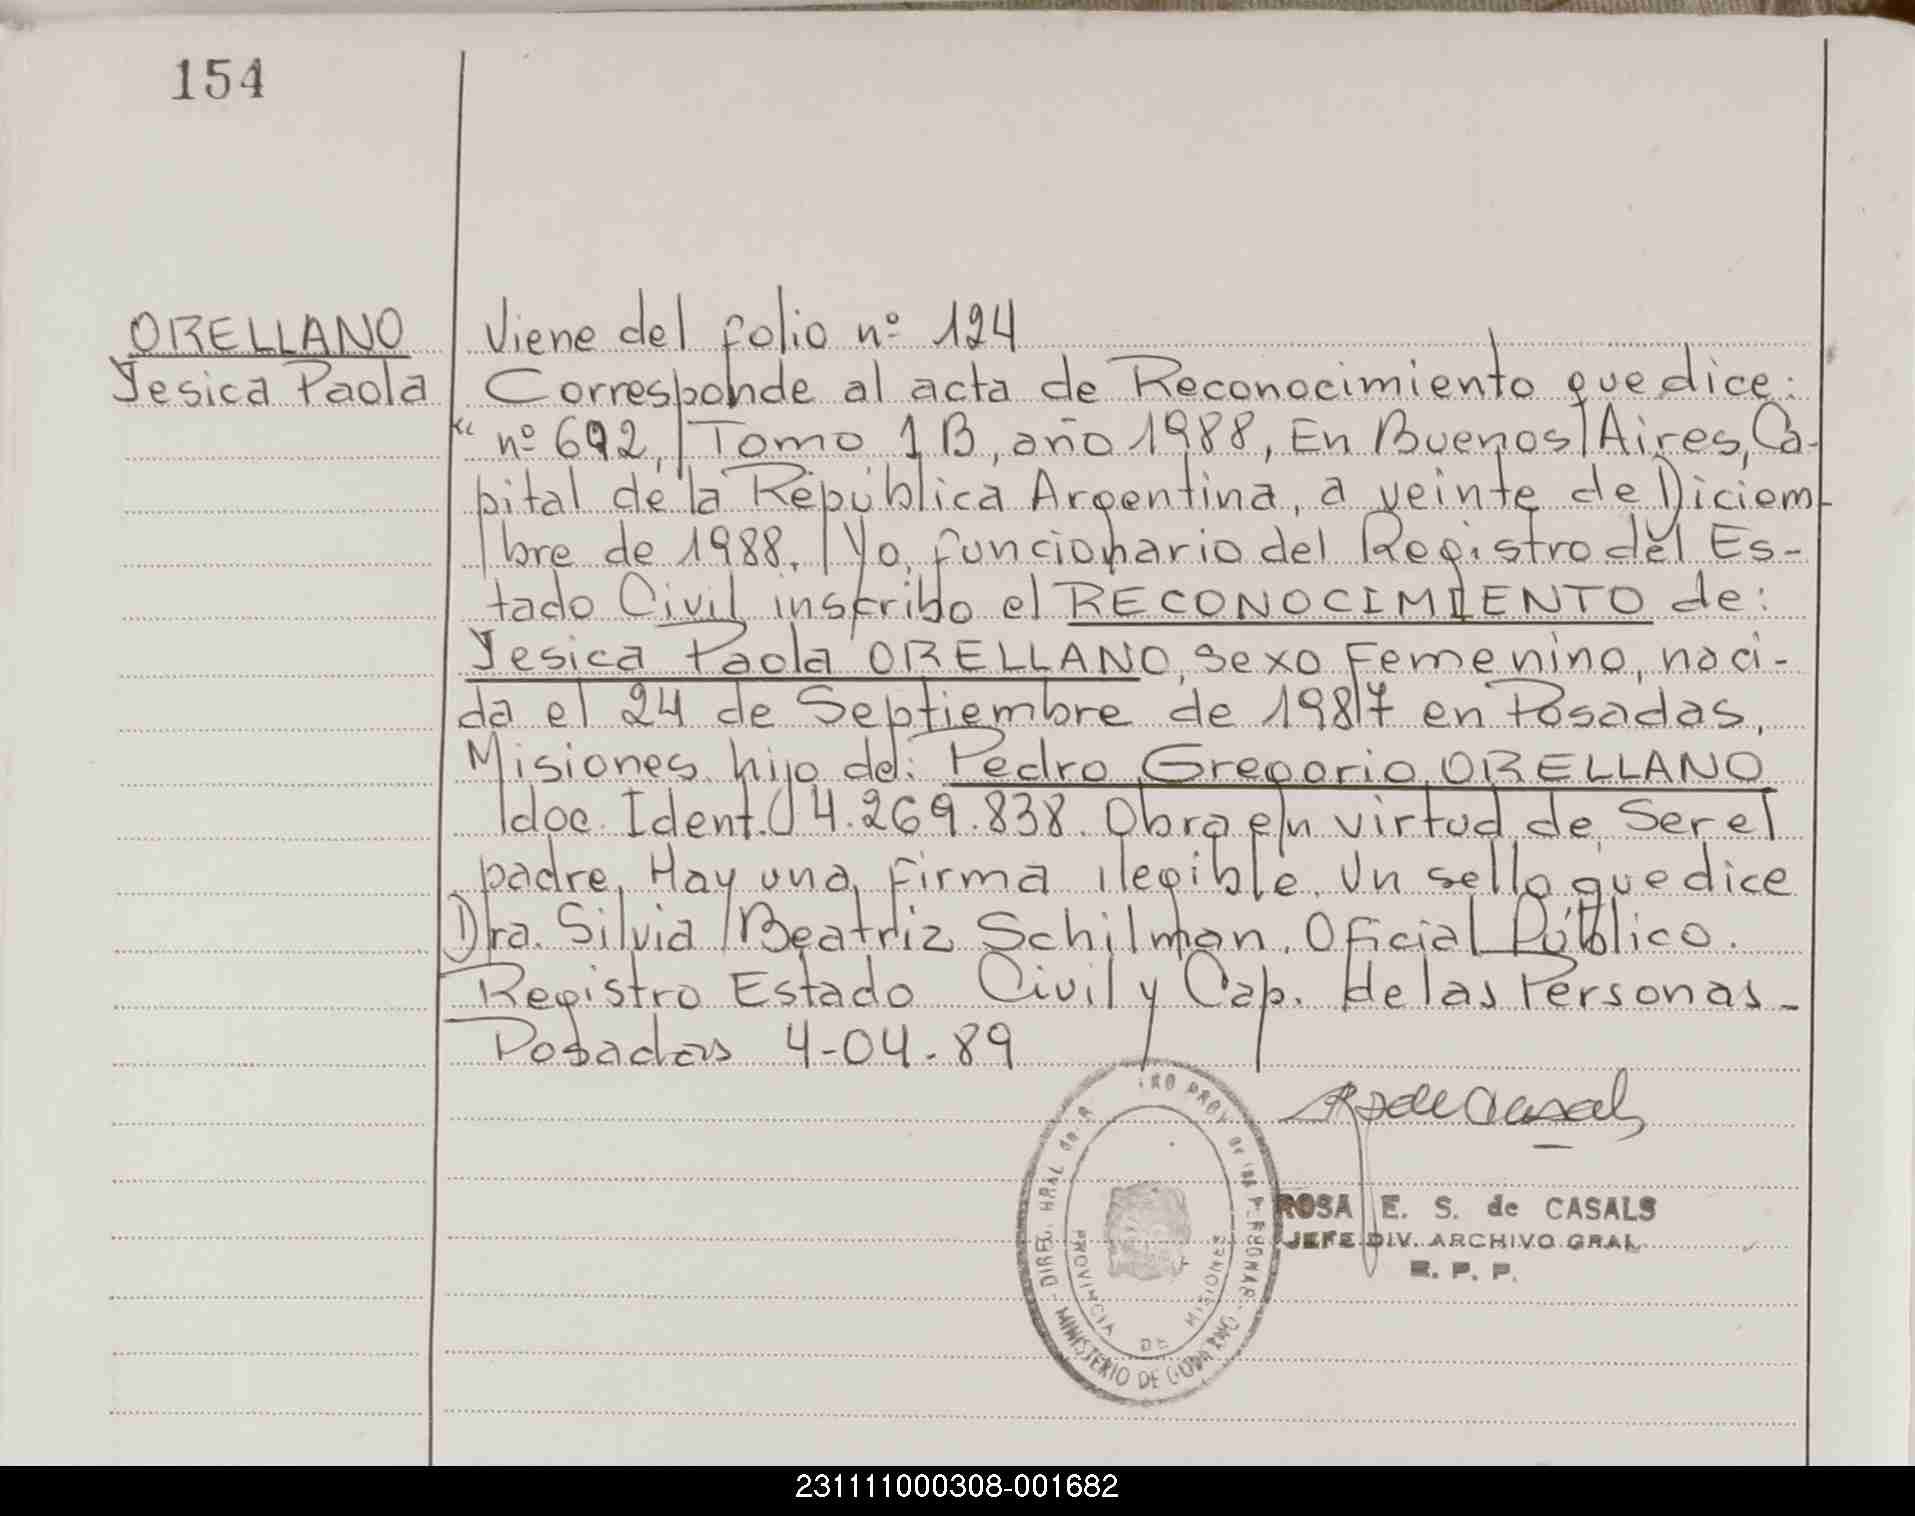 154
ORELLANO
Yesica Paola
Viene del folio nº 124
Corresponde al acta de Reconocimiento que dice:
“ nº 692, Tomo 1 B, año 1988, En Buenos Aires, Ca-
pital de la República Argentina, a veinte de Diciem-
bre de 1988. Yo, funcionario del Registro del Es-
tado Civil inscribo el RECONOCIMIENTO de:
Yesica Paola ORELLANO, sexo Femenino, naci-
da el 24 de Septiembre de 1987 en Posadas,
Misiones hijo de: Pedro Gregorio ORELLANO
doc. Ident. 4.269.838. Obra en virtud de ser el
padre. Hay una firma ilegible. Un sello que dice
Dra. Silvia Beatriz Schilman. Oficial Público.
Registro Estado Civil y Cap. de las Personas-
Posadas 4-04-89
R S de Casals
ROSA E. S. de CASALS
JEFE DIV. ARCHIVO GRAL.
R. P. P.
PROV de las PERSONAS
MINISTERIO DE GOBIERNO
PROVINCIA DE MISIONES
231111000308-001682